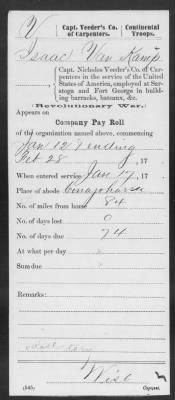 V | Capt. Veeder's Co. of Carpenters. | Continental Troops.
Isaac Van Kamp
Capt. Nicholas Veeder's Co. of Carpenters
in the service of the United
States of America, employed at Saratoga
and Fort George in building
barracks, bateaux, &c.
(Revolutionary War.)
Appears on
Company Pay Roll
of the organization named above, commencing
Jan 12 & ending
Feb 28, 17
When entered service Jan 17, 17
Place of abode Conajoharie
No. of miles from home 84
No. of days lost 0
No. of days due 74
At what per day
Sum due
Remarks:
Wise
(545) Copyist.